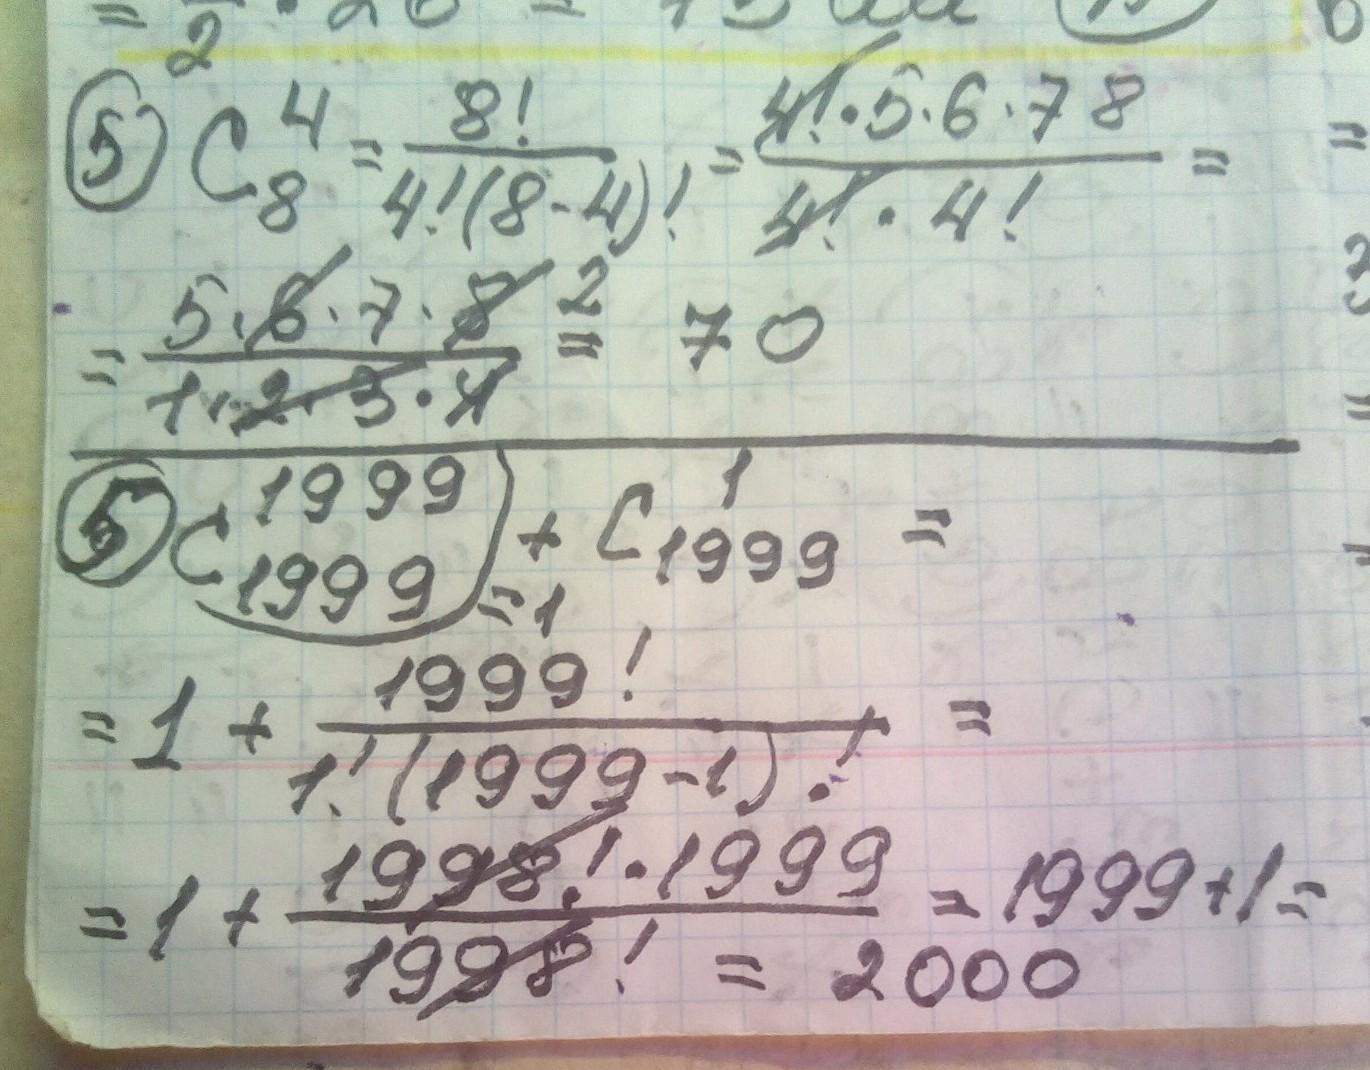 2 · 20 = 15
⑤ C₈⁴ = 8! / 4!(8-4)! = 4!·5·6·7 8 / 4!·4! =
= 5·6·7·8 / 1·2·3·4 2 = 70
⑤ C₁₉₉₉¹⁹⁹⁹ = 1 + C₁₉₉₉¹ =
= 1 + 1999! / 1!(1999-1)! =
= 1 + 1998!·1999 / 1998! = 1999+1=
= 2000